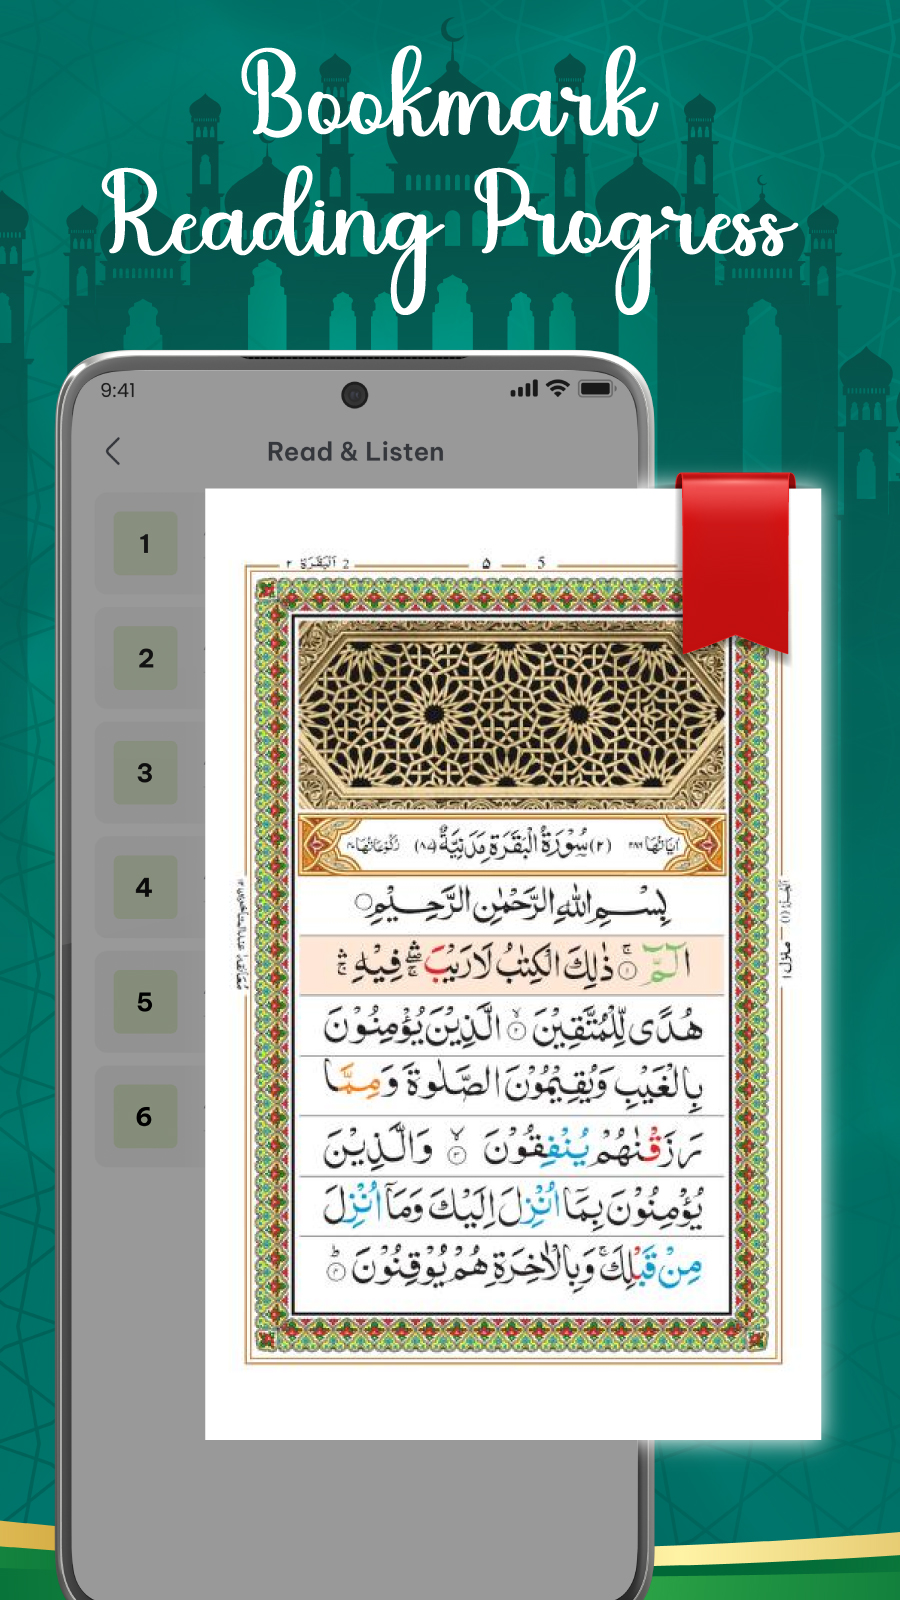 Bookmark
Reading Progress
9:41
Read & Listen
1
2
3
4
5
6
2 اَلْبَقَرَة ٢
۵ 5
اٰيَاتُهَا ٢٨٦ (٢) سُوْرَةُ الْبَقَرَةِ مَدَنِيَّةٌ (٨٧) رُكُوْعَاتُهَا ٤٠
بِسْــمِ اللهِ الرَّحْمٰنِ الرَّحِــيْمِ
الٓمّٓ ۚ ١ ذٰلِكَ الْكِتٰبُ لَا رَيْبَ ۛ فِيْهِ ۛ
هُدًى لِّلْمُتَّقِيْنَ ۙ ٢ الَّذِيْنَ يُؤْمِنُوْنَ
بِالْغَيْبِ وَيُقِيْمُوْنَ الصَّلٰوةَ وَمِمَّا
رَزَقْنٰهُمْ يُنْفِقُوْنَ ۙ ٣ وَالَّذِيْنَ
يُؤْمِنُوْنَ بِمَا اُنْزِلَ اِلَيْكَ وَمَآ اُنْزِلَ
مِنْ قَبْلِكَ ۚ وَبِالْاٰخِرَةِ هُمْ يُوْقِنُوْنَ ؕ ٤